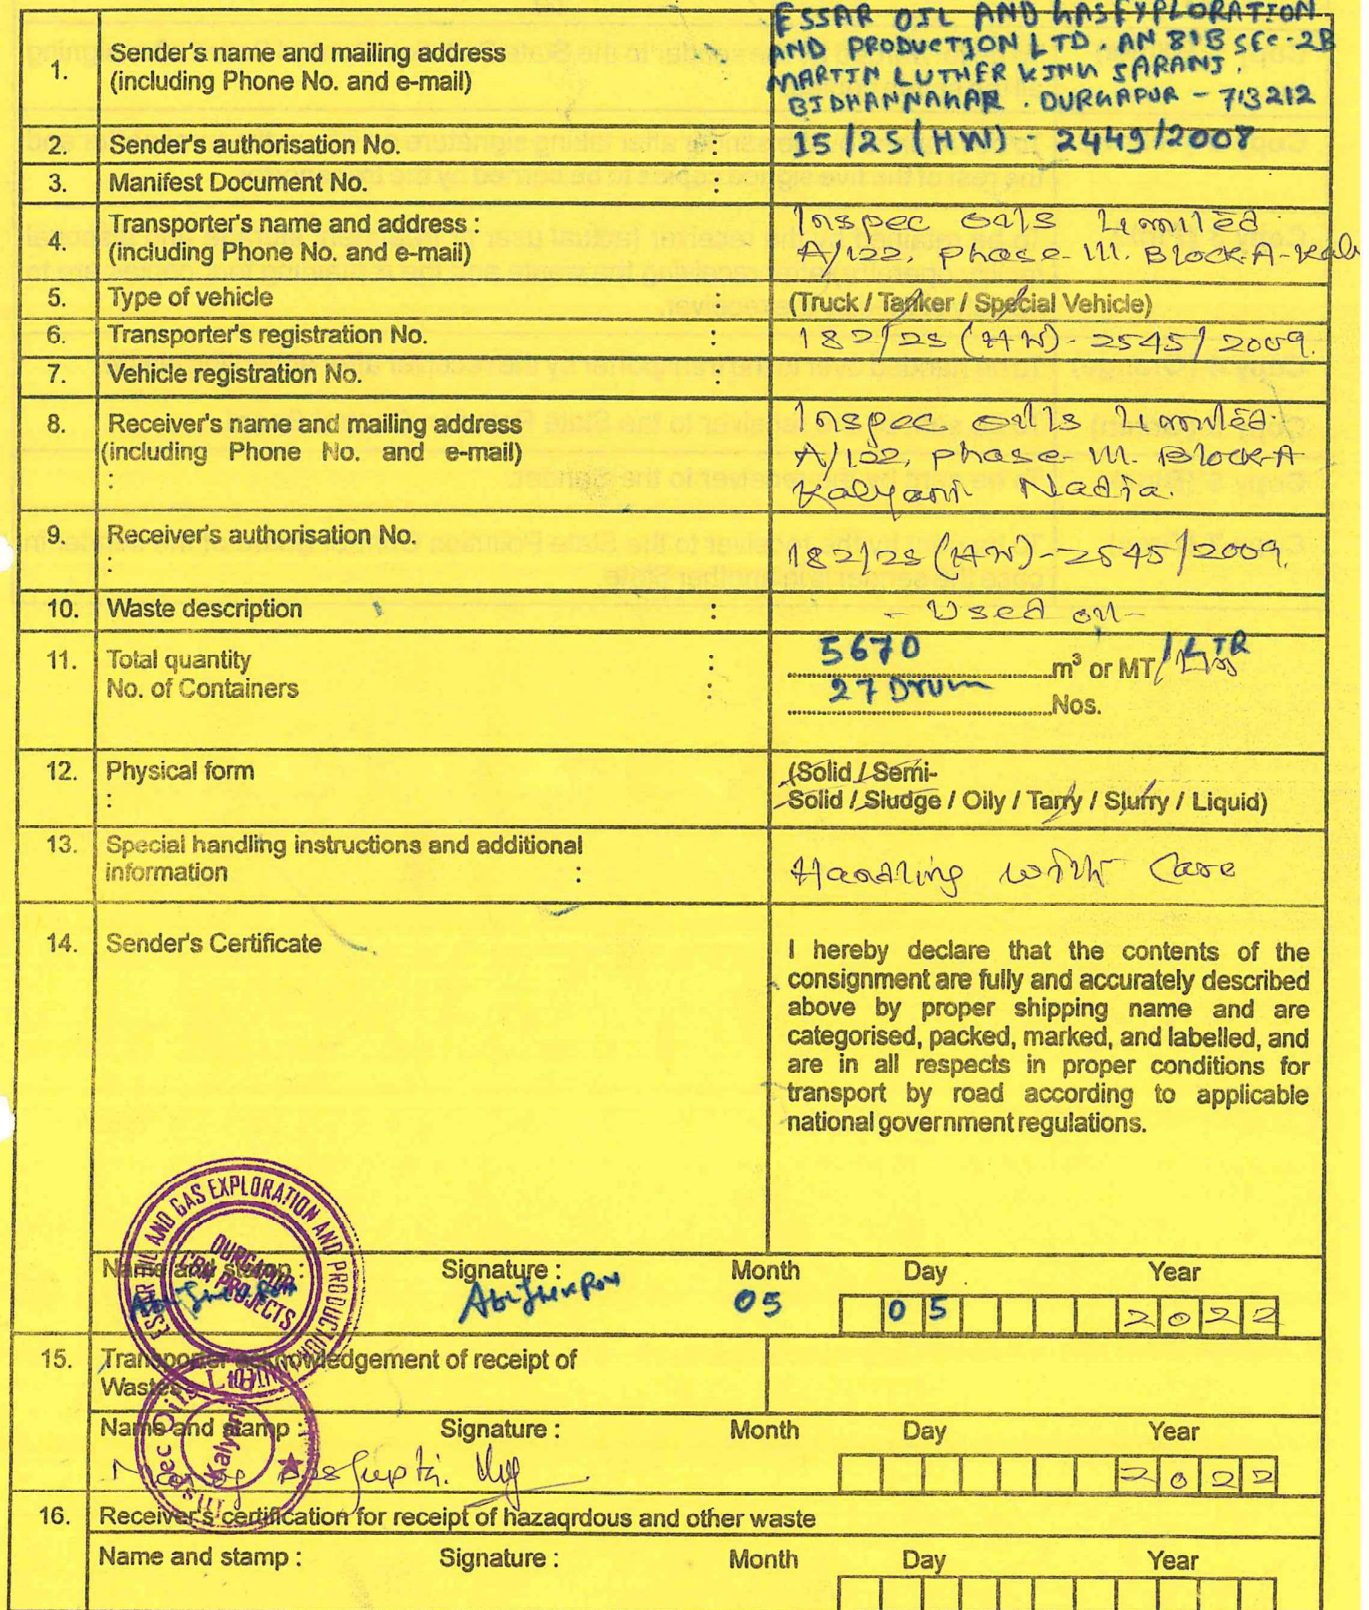 ESSAR OIL AND GAS EXPLORATION
1. Sender's name and mailing address
(including Phone No. and e-mail) :
AND PRODUCTION LTD. AN 81B SEC-2B
MARTIN LUTHER KING SARANI.
BIDHANNAGAR. DURGAPUR - 713212
2. Sender's authorisation No. : 15/25(HW) - 2449/2008
3. Manifest Document No. :
4. Transporter's name and address :
(including Phone No. and e-mail)
Inspec Oils Limited.
A/122, phase-III. Block-A-Kal
5. Type of vehicle : (Truck / Tanker / Special Vehicle)
6. Transporter's registration No. : 182/2S(HW)-2545/2009.
7. Vehicle registration No. :
8. Receiver's name and mailing address
(including Phone No. and e-mail)
:
Inspec Oils Limited.
A/122, phase-III. Block-A
Kalyani Nadia.
9. Receiver's authorisation No.
:
182/2S(HW)-2545/2009.
10. Waste description : - Used oil -
11. Total quantity : 5670 m³ or MT / LTR
No. of Containers : 27 Drum Nos.
12. Physical form
:
(Solid / Semi-
Solid / Sludge / Oily / Tarry / Slurry / Liquid)
13. Special handling instructions and additional
information :
Handling with Care
14. Sender's Certificate
I hereby declare that the contents of the
consignment are fully and accurately described
above by proper shipping name and are
categorised, packed, marked, and labelled, and
are in all respects in proper conditions for
transport by road according to applicable
national government regulations.
ESSAR OIL AND GAS EXPLORATION AND PRODUCTION LIMITED
DURGAPUR
CBM PROJECTS
Name and stamp : Signature : Month Day Year
05 05 2022
15. Transporter acknowledgement of receipt of
Wastes
Inspec Oils Limited
Kalyani
Name and stamp : Signature : Month Day Year
Dasgupta. 2022
16. Receiver's certification for receipt of hazaqrdous and other waste
Name and stamp : Signature : Month Day Year